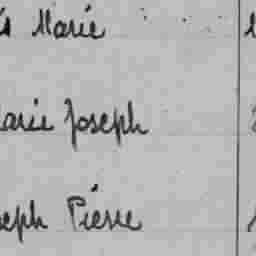 Marie
Marie Joseph
Joseph Pierre